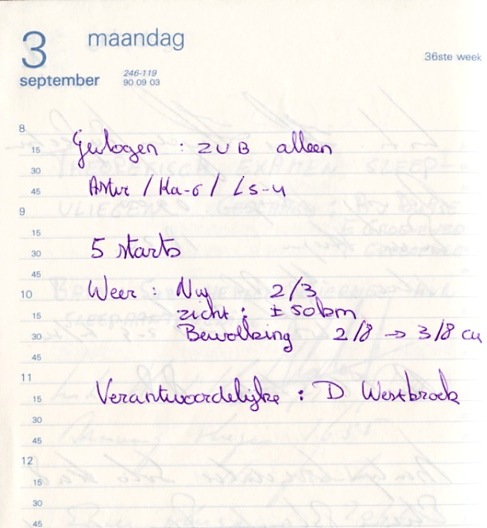 3 maandag
september 246-119
90 09 03
36ste week
8
15 Gevlogen : ZVB alleen
30
45 Astir / Ka-6 / LS-4
9
15
30 5 starts
45
10 Weer : NW 2/3
15 zicht : ± 50 km
30 Bewolking 2/8 → 3/8 cu
45
11
15 Verantwoordelijke : D Westbroek
30
45
12
15
30
45